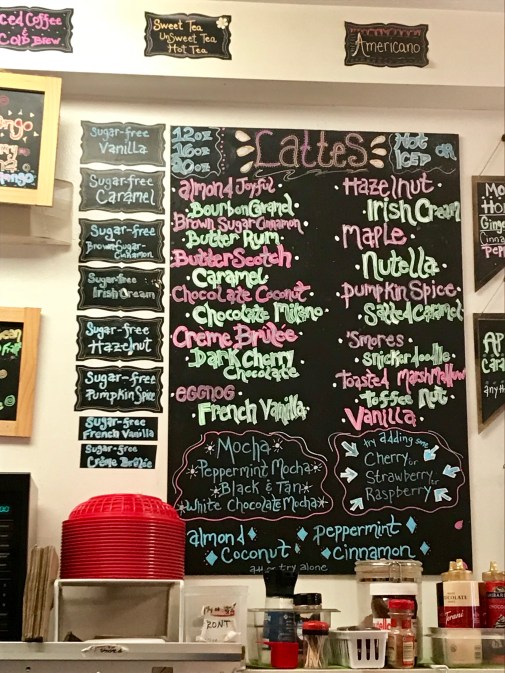 ced Coffee
&
Cold Brew
Sweet Tea
UnSweet Tea
Hot Tea
Americano
Sugar-free
Vanilla
Sugar-free
Caramel
Sugar-free
Brown Sugar-
Cinnamon
Sugar-free
Irish Cream
Sugar-free
Hazelnut
Sugar-free
Pumpkin Spice
Sugar-free
French Vanilla
Sugar-free
Crème Brûlée
12oz
16oz
20oz
Lattes
Hot or
Iced
Almond Joyful
Bourbon Caramel
Brown Sugar Cinnamon
Butter Rum
ButterScotch
Caramel
Chocolate Coconut
Chocolate Milano
Creme Brulée
Dark Cherry
Chocolate
eggnog
French Vanilla
Hazelnut
Irish Cream
Maple
Nutella
Pumpkin Spice
Salted Caramel
'Smores
snickerdoodle
Toasted Marshmallow
Toffee Nut
Vanilla
Mocha
Peppermint Mocha
Black & Tan
White Chocolate Mocha
try adding some
Cherry or
Strawberry or
Raspberry
almond
Coconut
Peppermint
Cinnamon
add or try alone
ango
ango
Mo
Ho
Ginge
Cinna
Pepp
AP
Cara
any
Torani